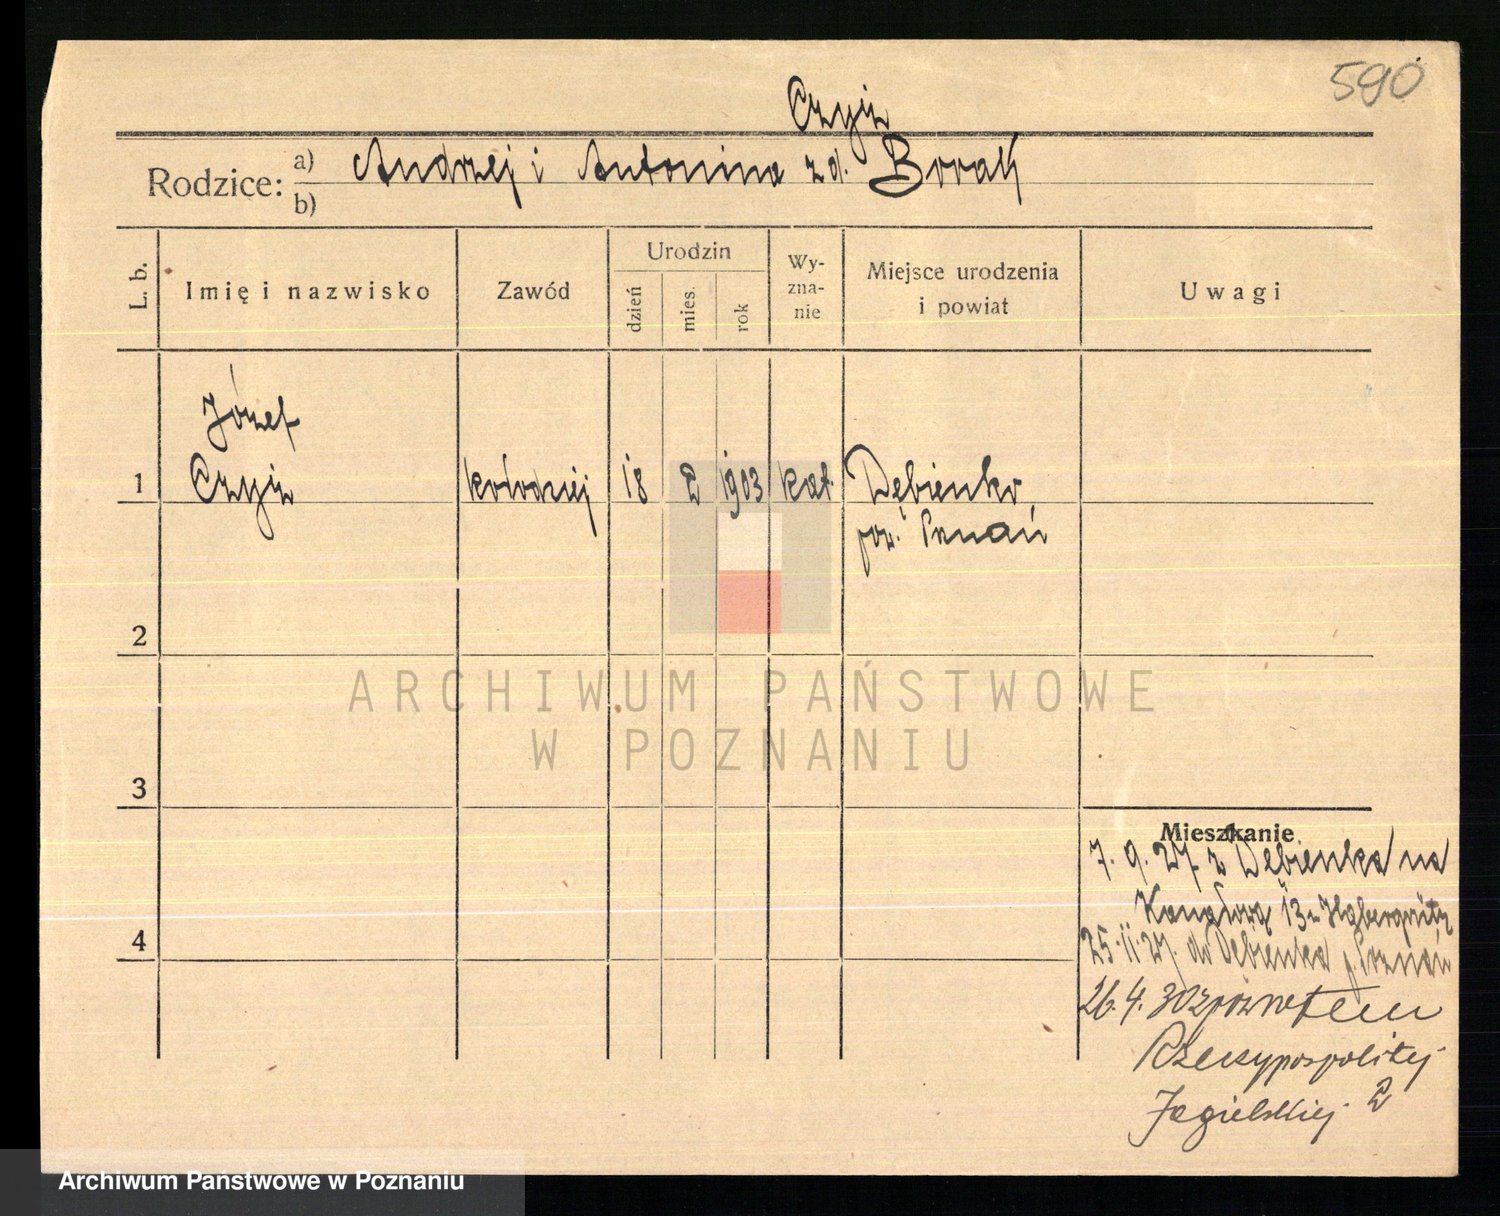 590
Czyż
Rodzice: a) Andrzej i Antonina z d. Borak
b)
L. b.
Imię i nazwisko
Zawód
Urodzin
dzień
mies.
rok
Wy-
zna-
nie
Miejsce urodzenia
i powiat
Uwagi
Józef
1 Czyż kołodziej 18 2 1903 kat. Dębienko
pow. Poznań
2
ARCHIWUM PAŃSTWOWE
W POZNANIU
3
Mieszkanie
7. 9. 27. z Dębienka na
Kanałową 13
4
25. 11. 27. do Dębienka p. Poznań
26. 4. 30 z powrotem
Rzeczypospolitej
2
Archiwum Państwowe w Poznaniu